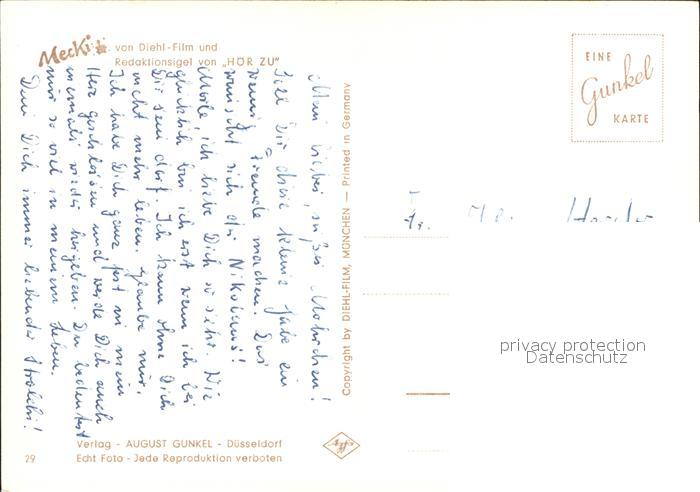 Mecki von Diehl-Film und
Redaktionsigel von „HÖR ZU"
Mein lieber, süßer
Soll Dir diese kleine Gabe ein
wenig Freude machen. Das
wünscht sich der Nikolaus!
ich liebe Dich so sehr. Wie
glücklich bin ich erst wenn ich bei
Dir sein darf. Ich kann ohne Dich
nicht mehr leben. Glaube mir,
Ich habe Dich ganz fest in mein
Herz geschlossen und werde Dich auch
niemals wieder hergeben. Du bedeutest
mir so viel in meinem Leben.
Dein Dich immer liebender
Copyright by DIEHL-FILM, MÜNCHEN — Printed in Germany
EINE
Gunkel
KARTE
privacy protection
Datenschutz
Verlag - AUGUST GUNKEL - Düsseldorf
29 Echt Foto - Jede Reproduktion verboten
Agfa